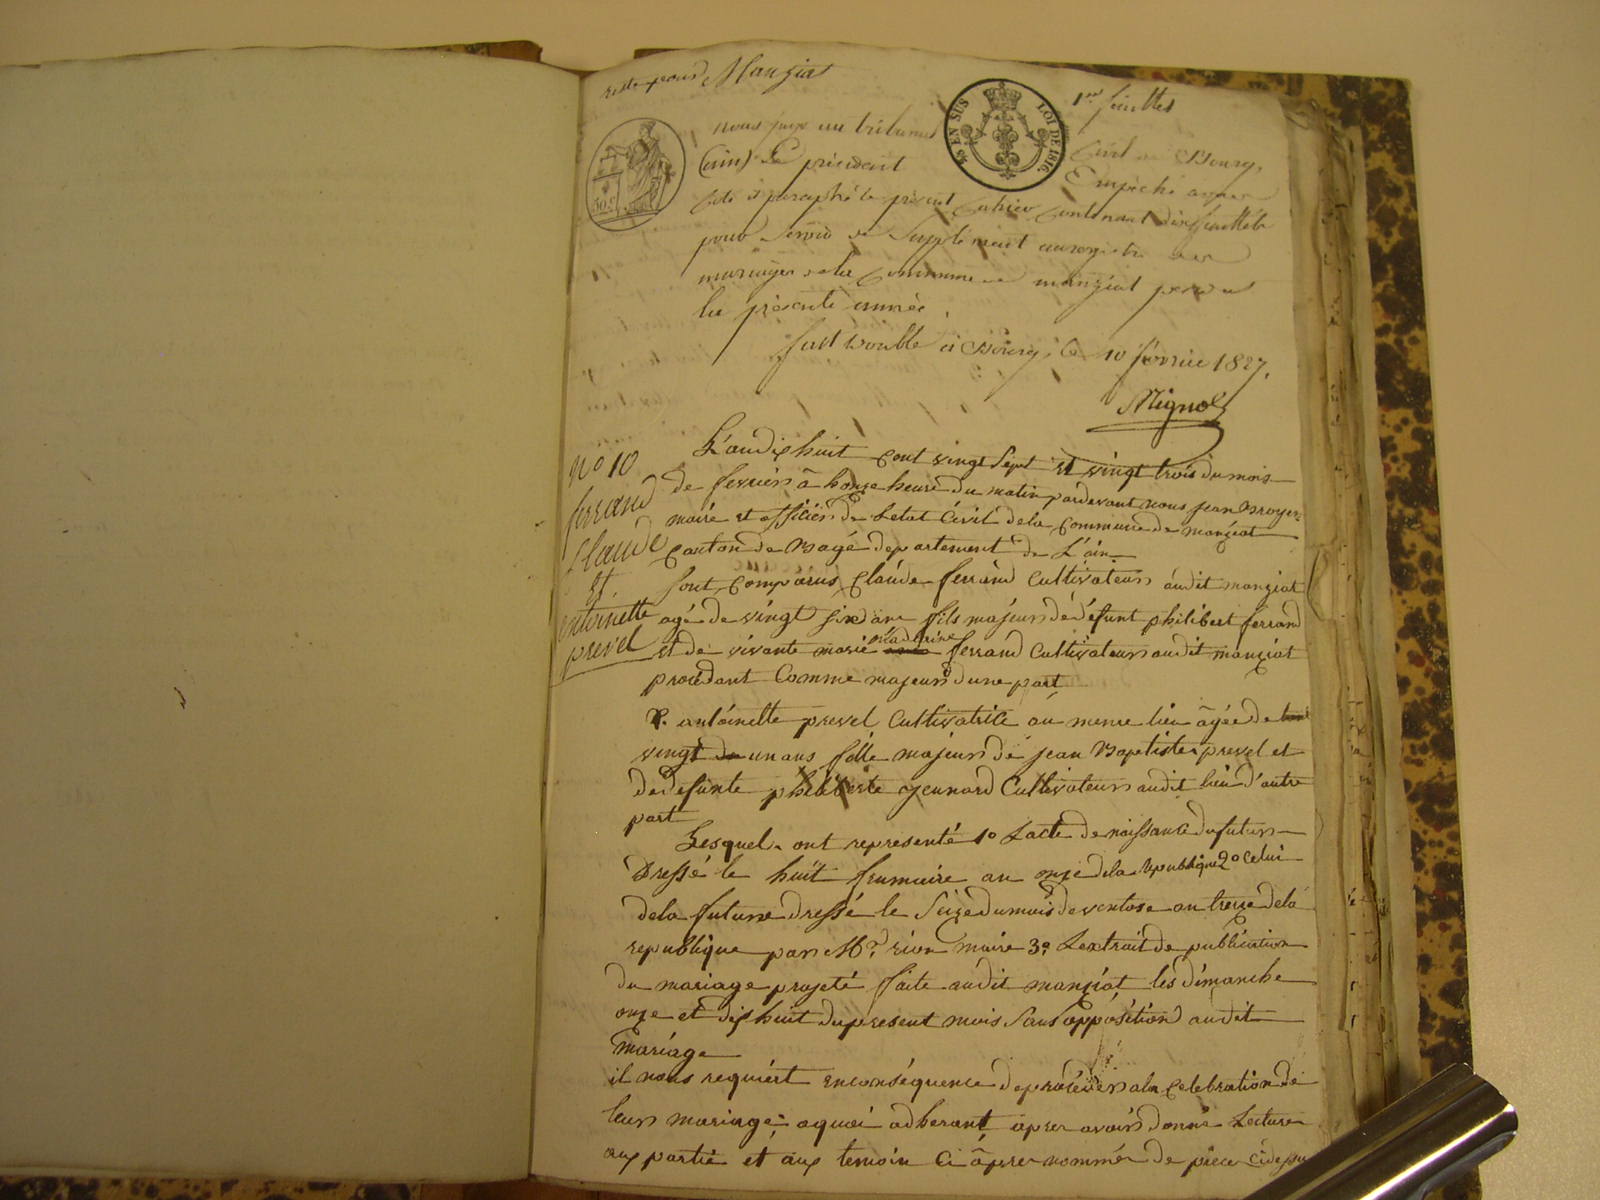 Manziat
1er feuillet
50 EN SUS LOI DE 1816
50 c
nous juge au tribunal Civil de Bourg,
(ain) Le président Empêché avons
coté et paraphé le présent Cahier Contenant dix feuillets
pour servir de Supplément au registre des
mariages de la Commune de manziat pendant
la présente année.
fait double à Bourg, le 10 février 1827.
Mignot
No 10
ferrand
Claude
et
antoinette
prevel
L'an dix huit cent vingt Sept et vingt trois du mois
de fevrier à honze heure du matin pardevant nous jean Broyer
maire et officier de l'etat Civil de la Commune de manziat
canton de Bagé departement de L'ain
Sont Comparus Claude ferrand Cultivateur audit manziat
agé de vingt six ans fils majeur de défunt philibert ferrand
et de vivante marie ferrand Cultivateur audit manziat
procédant Comme majeur d'une part
& antoinette prevel Cultivatrice au meme lieu âgée de
vingt un ans fille majeur de jean Baptiste prevel et
de defunte philiberte Cultivateur audit lieu d'autre
part
Lesquel ont representé 1o Lacte de naissance du futur
Dressé le huit frumaire an onze de la republique 2o Celui
de la future dressé le Seize du mois de ventose an treize de la
republique par Mr. rion maire 3o Lextrait de publication
du mariage projeté faite audit manziat les dimanche
onze et dix huit du present mois Sans opposition audit
mariage
il nous requiert en conséquence de proceder a la Celebration de
leur mariage a quoi adherant, apres avoir donné Lecture
aux partie et aux temoin ci âpres nommés de piece cidessu